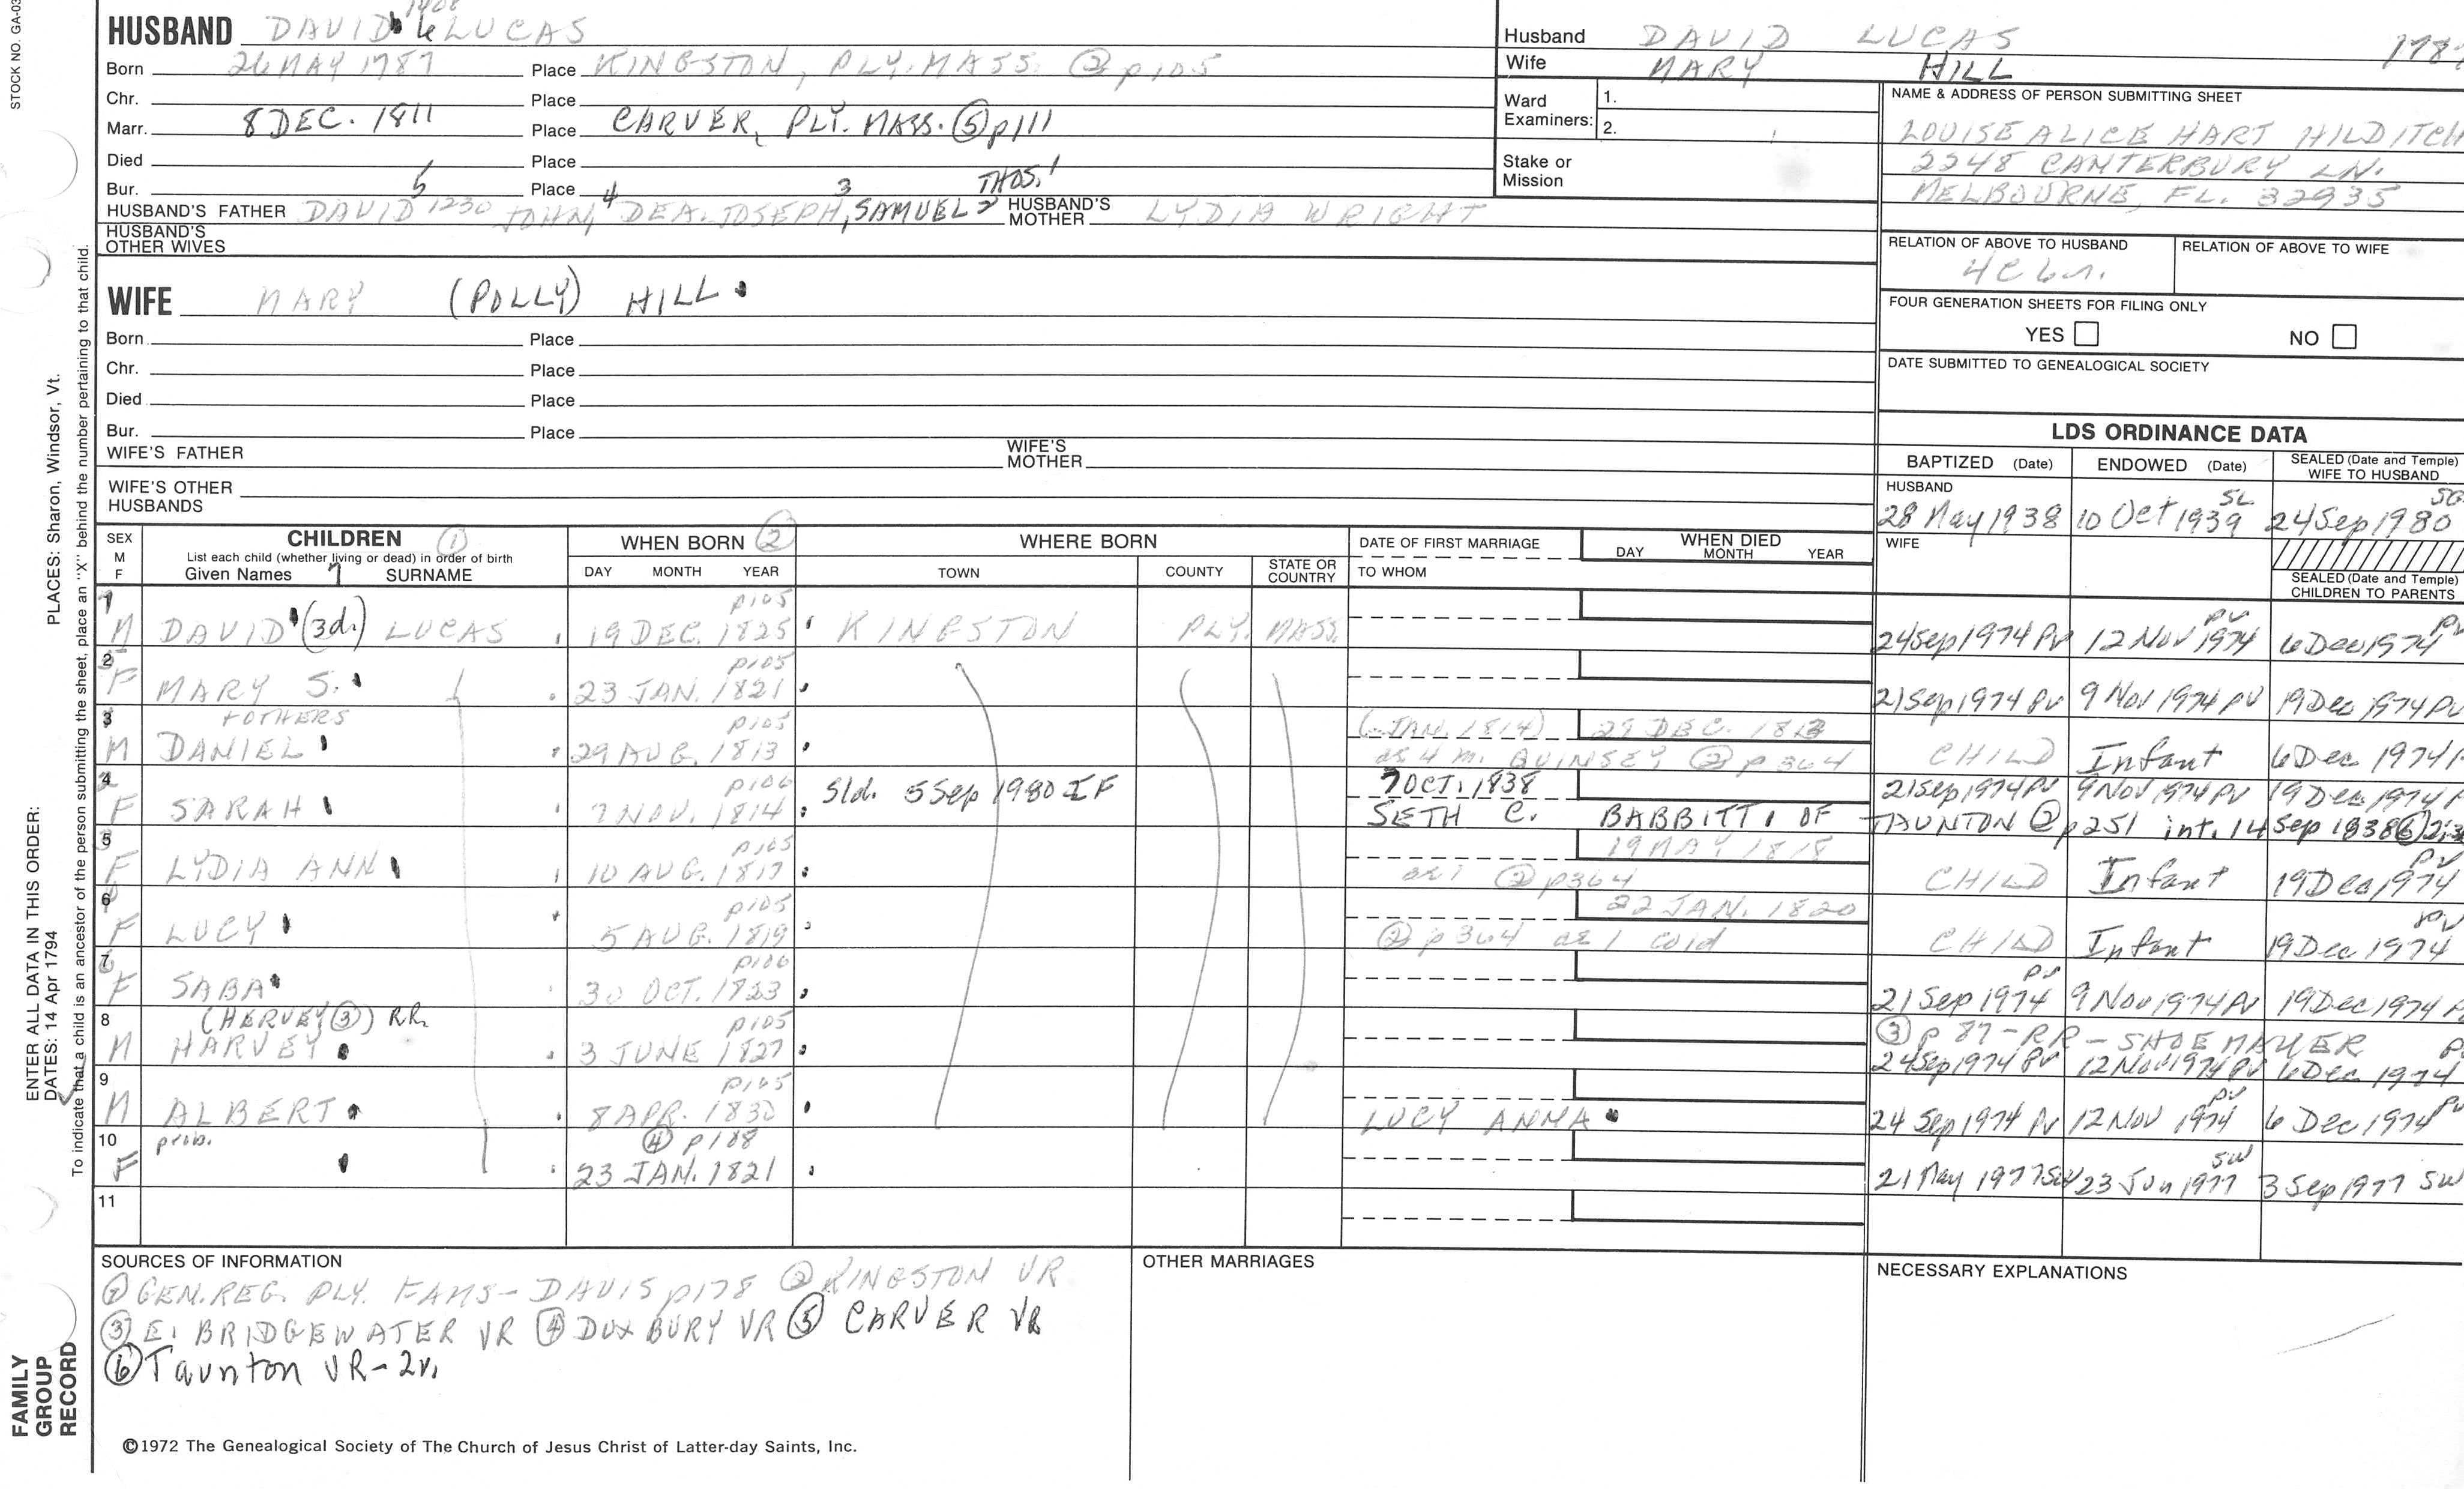 STOCK NO. GA-03
1408
HUSBAND DAVID 6 LUCAS
Born 26 MAY 1787 Place KINGSTON, PLY. MASS. ② p105
Chr. Place
Marr. 8 DEC. 1811 Place CARVER, PLY. MASS. ⑤ p111
Died Place
Bur. Place
HUSBAND'S FATHER DAVID 5 1230 JOHN, 4 DEA. JOSEPH, 3 SAMUEL 2 THOS. 1 HUSBAND'S MOTHER LYDIA WRIGHT
HUSBAND'S OTHER WIVES
WIFE MARY (POLLY) HILL
Born Place
Chr. Place
Died Place
Bur. Place
WIFE'S FATHER WIFE'S MOTHER
WIFE'S OTHER HUSBANDS
Husband DAVID LUCAS 1787
Wife MARY HILL
Ward Examiners: 1.
2.
Stake or Mission
NAME & ADDRESS OF PERSON SUBMITTING SHEET
LOUISE ALICE HART HILDITCH
2248 CANTERBURY LN.
MELBOURNE, FL. 32935
RELATION OF ABOVE TO HUSBAND RELATION OF ABOVE TO WIFE
4C 6r.
FOUR GENERATION SHEETS FOR FILING ONLY
YES NO
DATE SUBMITTED TO GENEALOGICAL SOCIETY
LDS ORDINANCE DATA
BAPTIZED (Date) ENDOWED (Date) SEALED (Date and Temple) WIFE TO HUSBAND
HUSBAND
28 May 1938 10 Oct 1939 SL 24 Sep 1980 SG
WIFE
SEALED (Date and Temple) CHILDREN TO PARENTS
SEX M F CHILDREN ① WHEN BORN ② WHERE BORN DATE OF FIRST MARRIAGE WHEN DIED
List each child (whether living or dead) in order of birth
Given Names 7 SURNAME DAY MONTH YEAR TOWN COUNTY STATE OR COUNTRY TO WHOM DAY MONTH YEAR
1 M DAVID (3d.) LUCAS 19 DEC. 1825 p105 KINGSTON PLY. MASS. 24 Sep 1974 Pv 12 Nov 1974 PV 6 Dec 1974 PV
2 F MARY S. 23 JAN. 1821 p105 21 Sep 1974 Pv 9 Nov 1974 PV 19 Dec 1974 PV
+ OTHERS
3 M DANIEL 29 AUG. 1813 p105 (JAN. 1814) 29 DEC. 1813 CHILD Infant 6 Dec 1974
ae 4 m. QUINSEY ② p364
4 F SARAH 7 NOV. 1814 p106 Sld. 5 Sep 1980 IF 7 OCT. 1838 21 Sep 1974 PV 9 Nov 1974 PV 19 Dec 1974
SETH C. BABBITT, OF TAUNTON ② p251 int. 14 Sep 1838 ⑥
5 F LYDIA ANN 10 AUG. 1817 p105 19 MAY 1818 CHILD Infant 19 Dec 1974 PV
ae 1 ② p364
6 F LUCY 5 AUG. 1819 p105 22 JAN. 1820 CHILD Infant 19 Dec 1974 PV
② p364 ae 1 cold
7 F SABA 30 OCT. 1823 p106 21 Sep 1974 PV 9 Nov 1974 PV 19 Dec 1974
8 M (HERVEY ③) RR. HARVEY 3 JUNE 1827 p105 ③ p 87-RR - SHOEMAKER
24 Sep 1974 PV 12 Nov 1974 PV 6 Dec 1974
9 M ALBERT 8 APR. 1830 p105 LUCY ANNA 24 Sep 1974 Pv 12 Nov 1974 PV 6 Dec 1974 PV
10 F prob. 23 JAN. 1821 ④ p108 21 May 1977 SW 23 Jun 1977 SW 3 Sep 1977 SW
11
SOURCES OF INFORMATION
① GEN. REG. PLY. FAMS - DAVIS p178 ② KINGSTON VR
③ E. BRIDGEWATER VR ④ DUXBURY VR ⑤ CARVER VR
⑥ Taunton VR - 2v.
OTHER MARRIAGES
NECESSARY EXPLANATIONS
©1972 The Genealogical Society of The Church of Jesus Christ of Latter-day Saints, Inc.
ENTER ALL DATA IN THIS ORDER:
DATES: 14 Apr 1794
PLACES: Sharon, Windsor, Vt.
To indicate that a child is an ancestor of the person submitting the sheet, place an "X" behind the number pertaining to that child.
FAMILY
GROUP
RECORD